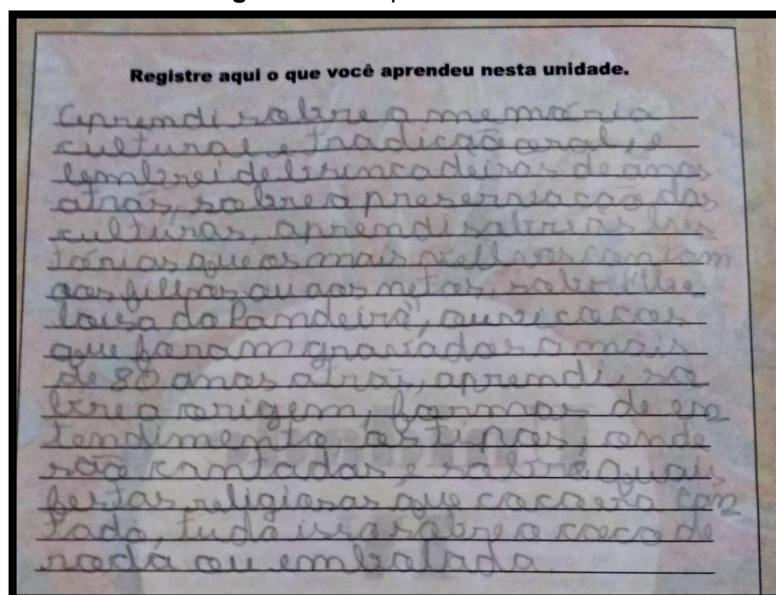 Registre aqui o que você aprendeu nesta unidade.
Aprendi sobre a memória
cultural e tradição oral, e
lembrei de brincadeiras de anos
atrás, sobre a preservação das
culturas, aprendi sobre as his
tórias que os mais velhos contam
aos filhos ou aos netos, sobre
do Pandeiro", ouvi cocos
que foram gravados a mais
de 80 anos atrás, aprendi, so
bre a origem, formas de en
tendimento, os tipos, onde
são kantadas, e sobre quais
festas religiosas que coco era can
tado, tudo isso sobre o coco de
roda ou embolada